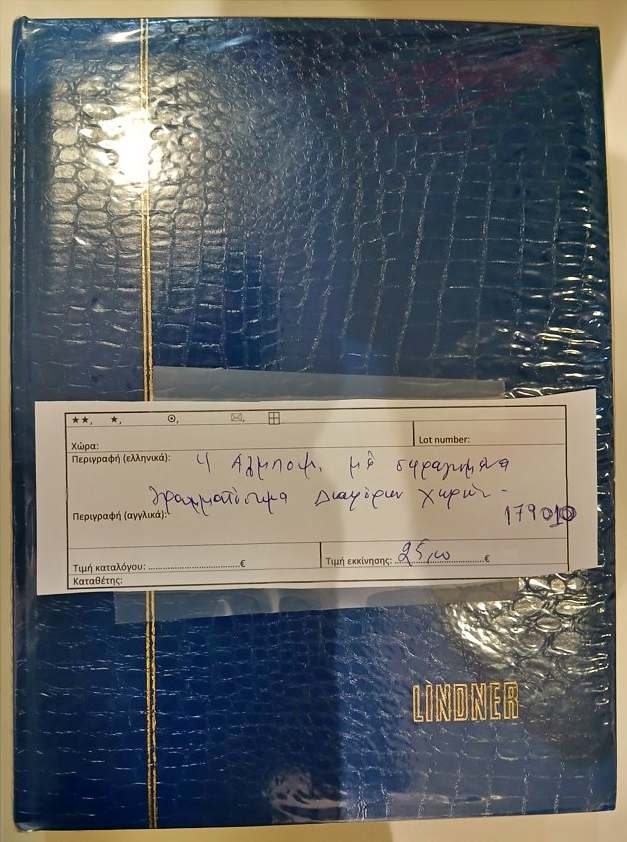 ★★, ★, ⊙, ✉, ⊞
Χώρα: Lot number:
Περιγραφή (ελληνικά): 4 Αλμπουμ, με σφραγισμένα
Γραμματόσημα Διαφόρων Χωρών -
Περιγραφή (αγγλικά):
179010
Τιμή καταλόγου: ........................€ Τιμή εκκίνησης: ..25,00........€
Καταθέτης:
LINDNER